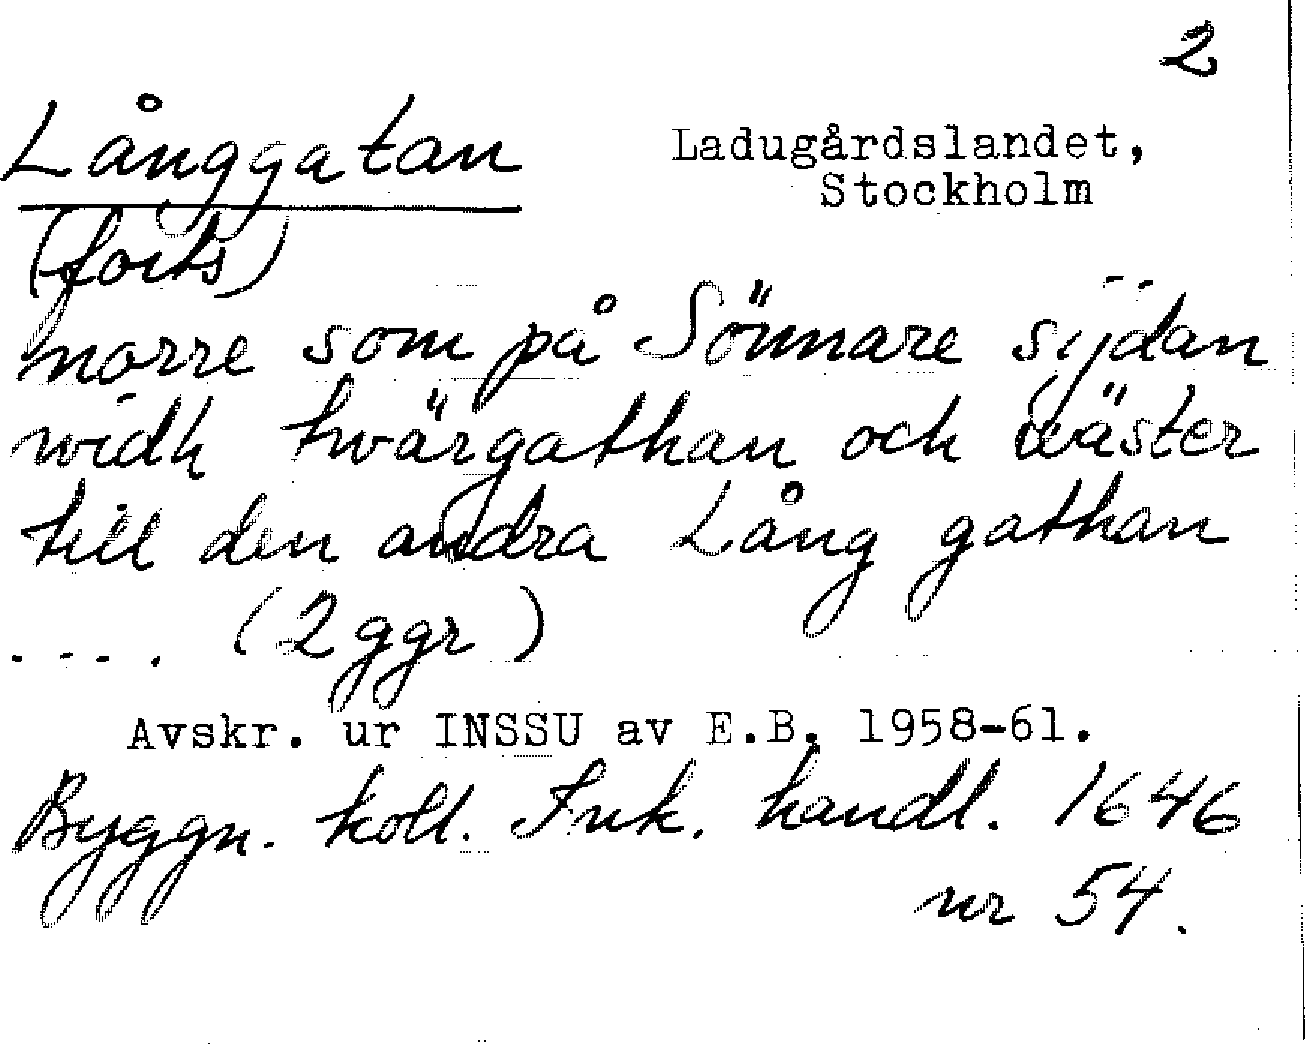 2
Långgatan
Ladugårdslandet,
Stockholm
(forts)
norre som på Sönnare sijdan
widh twärgathan och wäster
till den andra Lång gathan
.... (2 ggr)
Avskr. ur INSSU av E.B. 1958-61.
Byggn. koll. Ink. handl. 1646
nr 54.